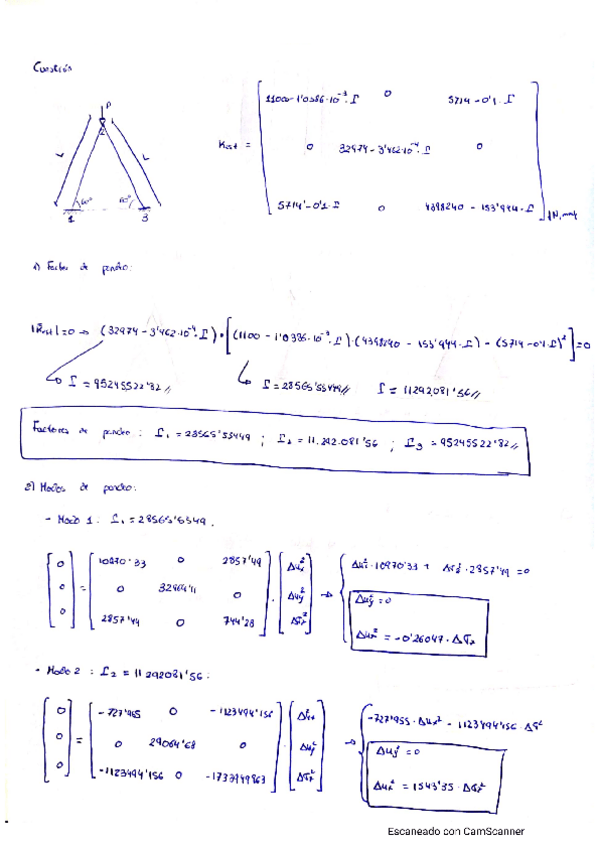 Cuestión
P
2
L
L
60°
60°
1
3
K_est =
11000-1'0386·10⁻³·I 0 5714-0'1·I
0 32974-3'462·10⁻⁴·I 0
5714'-0'1·I 0 4398240-153'944·I
N, mm
1) Factor de pandeo:
|K_est|=0 → (32974-3'462·10⁻⁴·I)·[(1100-1'0386·10⁻³·I)·(4398240-153'944·I)-(5714-0'1·I)²]=0
I = 95245522'82 // I = 28565'55449 // I = 11292.081'56 //
Factores de pandeo: I₁ = 28565'55449 ; I₂ = 11.292.081'56 ; I₃ = 95245522'82 //
2) Modos de pandeo:
- Modo 1: I₁ = 28565'5549.
0 10970'33 0 2857'49 Δux²
0 = 0 32964'11 0 · Δuy²
0 2857'49 0 744'28
Δux²·10970'33 + ·2857'49 = 0
Δuy² = 0
Δux² = -0'26047·
- Modo 2: I₂ = 11292081'56:
0 -727'955 0 -1123494'156 Δux²
0 = 0 29064'68 0 · Δuy²
0 -1123494'156 0 -1733949863
-727'955·Δux² - 1123494'156·
Δuy² = 0
Δux² = 1543'35·
Escaneado con CamScanner